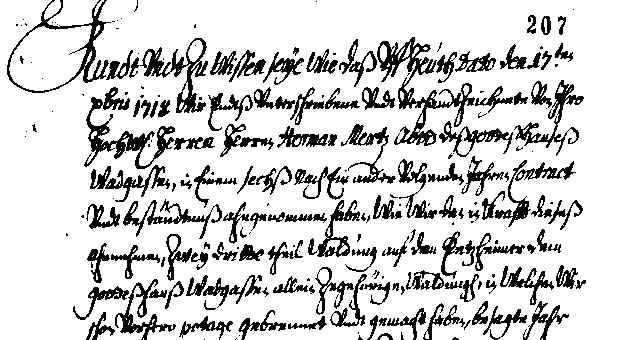 207
Kundt Undt Zu Wissen seÿe Wie daß Uff Heuth dato den 17ten
xbris 1718 Wir Endß Unterschriebene Undt Verhandtzeichnete Von Ihro
Hochw. Herren Herren Herman Mertz Abten deß gotteßhaußeß
Wadgaßen, in Einem sechß Nach Ein ander Volgenden Jahren Contract
Undt beständtnuß ahngenommen haben, Wie Wir dan in Krafft dießeß
ahnnehmen, Zweÿ dritte theil Waldung auf dem Hetzheimer dem
gotteßhauß Wadgaßen allein Zugehörige, Waldungh, in Welchen Wir
schon Vorhero potage gebrennet Undt gemacht haben, besagte Jahr